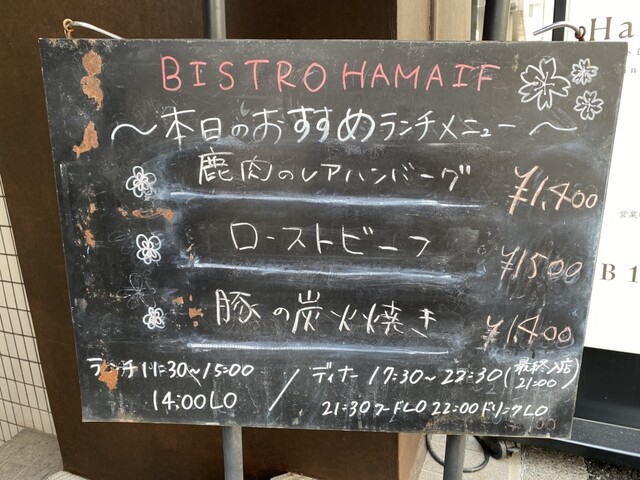 BISTRO HAMAIF
〜本日のおすすめランチメニュー〜
鹿肉のレアハンバーグ ¥1,400
ローストビーフ ¥1500
豚の炭火焼き ¥1,400
ランチ11:30〜15:00 / ディナー 17:30〜22:30(最終入店 21:00)
14:00LO 21:30フードLO 22:00ドリンクLO
Ha
営業
B1